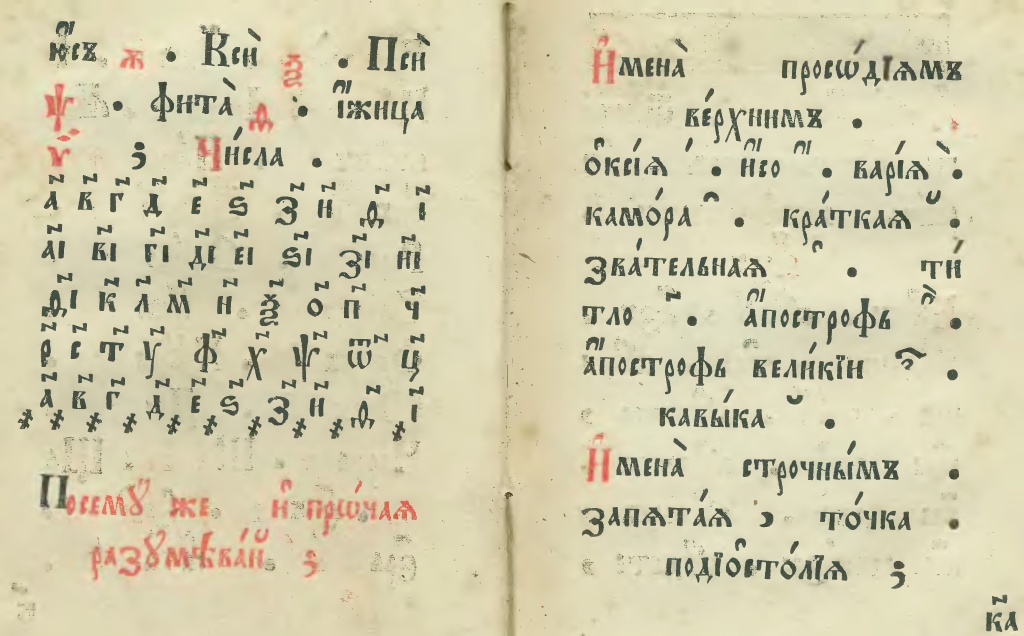 ю҆́съ ѫ . Ксѝ ѯ . Псѝ
ѱ . фита̀ ѳ . і҆́жица
ѵ ; Чи́сла .
а҃ в҃ г҃ д҃ е҃ ѕ҃ з҃ и҃ ѳ҃ і҃
а҃і в҃і г҃і д҃і е҃і ѕ҃і з҃і и҃і
ѳ҃і к҃ л҃ м҃ н҃ ѯ҃ о҃ п҃ ч҃
р҃ с҃ т҃ у҃ ф҃ х҃ ѱ҃ ѿ҃ ц҃
а҃ в҃ г҃ д҃ е҃ ѕ҃ з҃ и҃ ѳ҃ і҃
Посемꙋ̀ же и҆ прѡ́чаѧ
разꙋмѣва́й ;
И҆мена̀ просѡді́ѧмъ
ве́рхнимъ .
ѻ҆ксі́ѧ ́ . и҆́со ҆́ . варі́ѧ ̀ .
камо́ра ̑ . кра́ткаѧ ̆ .
зва́тельнаѧ ҆ . ти́
тло ҃ . а҆́построфь .
а҆́построфь вели́кїи .
кавы́ка ̆ .
И҆мена̀ строчны́мъ .
запѧта́ѧ , то́чка .
подїѻ҆сто́лїѧ ;
к҃а